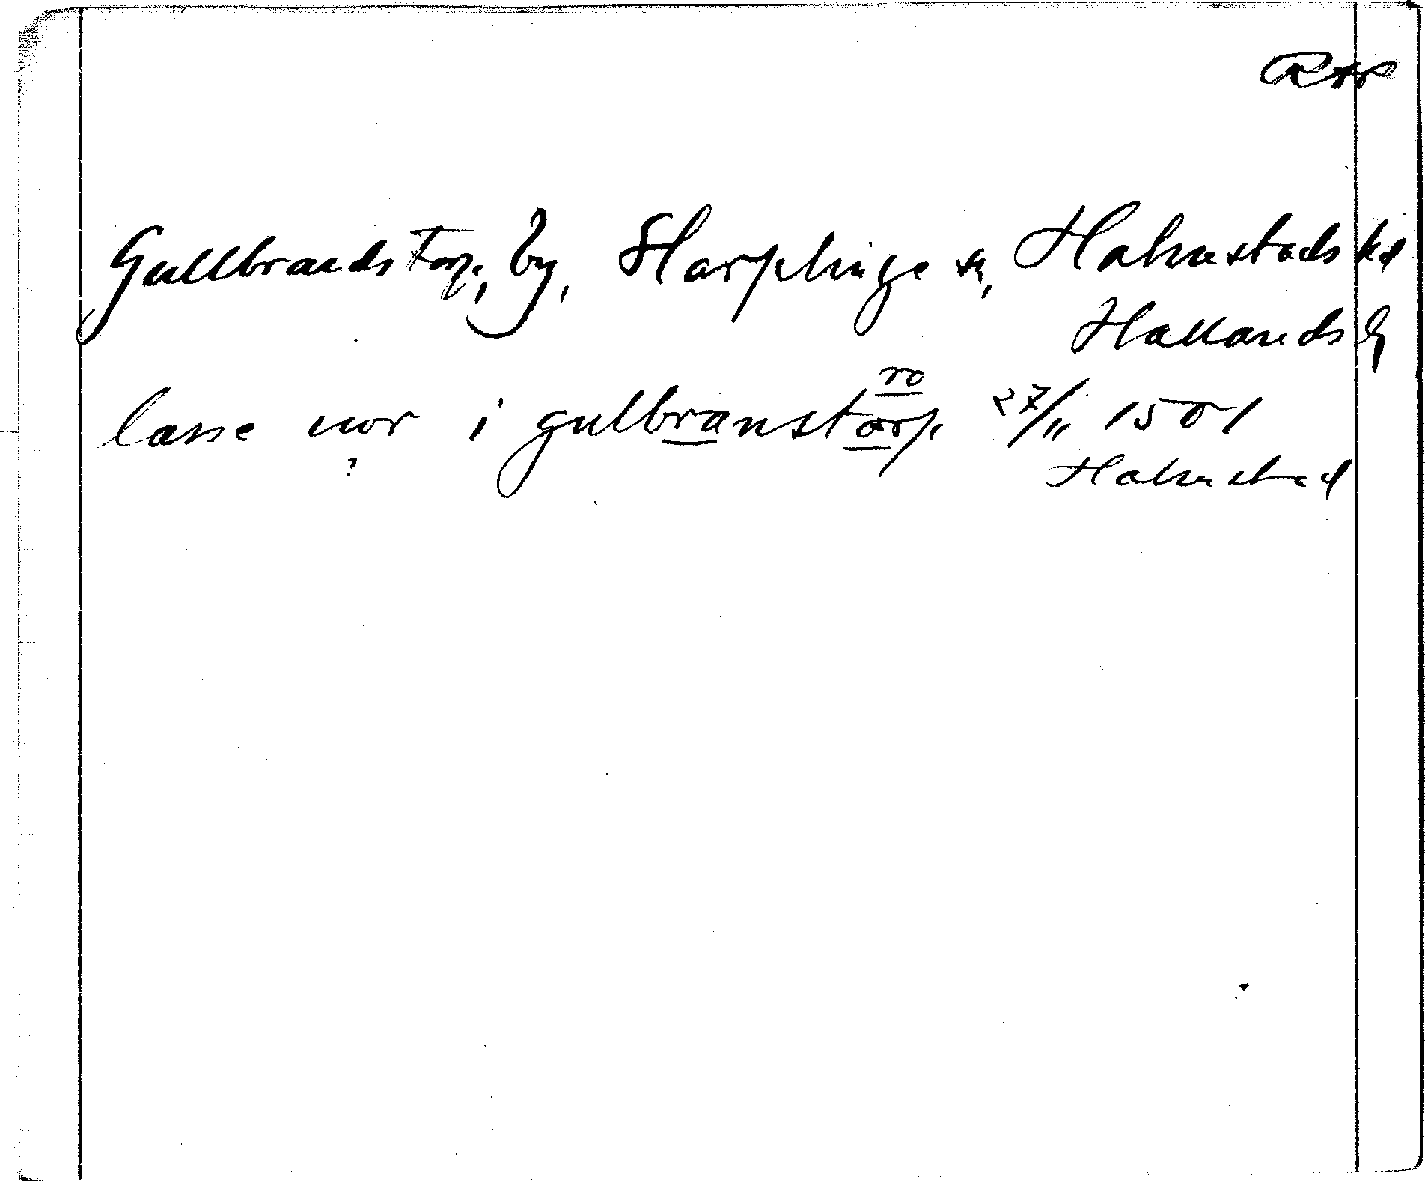 RAP
Gullbrandstorp, by, Harplinge sn, Halmstads hd
Hallands l
ro
lasse nor i gulbranstorp 27/11 1501
?
Halmstad